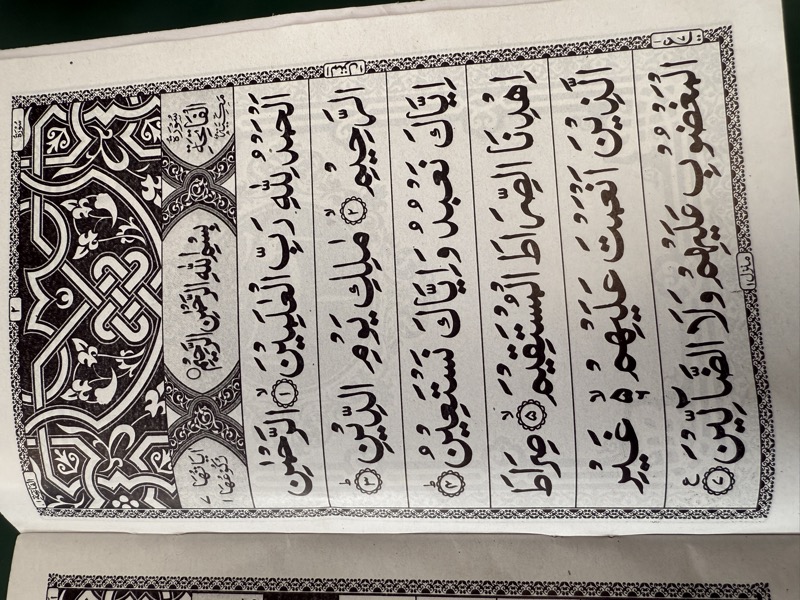 سُوْرَةُ الْفَاتِحَةِ مَكِّيَّةٌ
بِسْمِ اللّٰهِ الرَّحْمٰنِ الرَّحِيْمِ
اٰيَاتُهَا ٧ رُكُوْعُهَا ١
اَلْحَمْدُ لِلّٰهِ رَبِّ الْعٰلَمِيْنَۙ ۝١ الرَّحْمٰنِ
الرَّحِيْمِۙ ۝٢ مٰلِكِ يَوْمِ الدِّيْنِؕ ۝٣
اِيَّاكَ نَعْبُدُ وَاِيَّاكَ نَسْتَعِيْنُؕ ۝٤
اِهْدِنَا الصِّرَاطَ الْمُسْتَقِيْمَۙ ۝٥ صِرَاطَ
الَّذِيْنَ اَنْعَمْتَ عَلَيْهِمْ ۙ۬ۦ غَيْرِ
الْمَغْضُوْبِ عَلَيْهِمْ وَلَا الضَّآلِّيْنَ ۝٧
مَنْزِل ١
٢